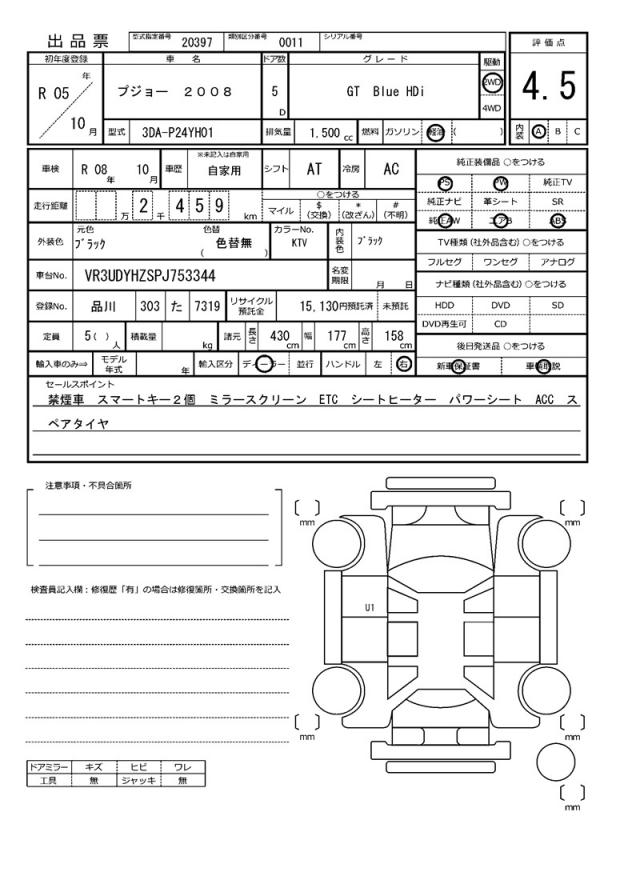 出品票 型式指定番号 20397 類別区分番号 0011 シリアル番号
評価点
4.5
内装 A B C
初年度登録 車名 ドア数 グレード 駆動
R 05 年 10 月 プジョー 2008 5 D GT Blue HDi 2WD 4WD
型式 3DA-P24YH01 排気量 1.500 cc 燃料 ガソリン 軽油 ( )
車検 R 08 年 10 月 車歴 ※未記入は自家用 自家用 シフト AT 冷房 AC
走行距離 万 2 千 4 5 9 km ○をつける
マイル $ (交換) * (改ざん) # (不明)
外装色 元色 ブラック 色替 色替無 ( ) カラーNo. KTV 内装色 ブラック
車台No. VR3UDYHZSPJ753344 名変期限 月 日
登録No. 品川 303 た 7319 リサイクル預託金 15,130円預託済 未預託
定員 5( ) 人 積載量 kg 諸元 長さ 430 cm 幅 177 cm 高さ 158 cm
輸入車のみ⇒ モデル年式 年 輸入区分 ディーラー 並行 ハンドル 左 右
純正装備品 ○をつける
PS PW 純正TV
純正ナビ 革シート SR
純正AW エアB ABS
TV種類(社外品含む)○をつける
フルセグ ワンセグ アナログ
ナビ種類(社外品含む)○をつける
HDD DVD SD
DVD再生可 CD
後日発送品 ○をつける
新車保証書 車輌取説
セールスポイント
禁煙車 スマートキー2個 ミラースクリーン ETC シートヒーター パワーシート ACC ス
ペアタイヤ
注意事項・不具合箇所
検査員記入欄:修復歴「有」の場合は修復箇所・交換箇所を記入
mm mm
U1
mm mm
mm
ドアミラー キズ ヒビ ワレ
工具 無 ジャッキ 無